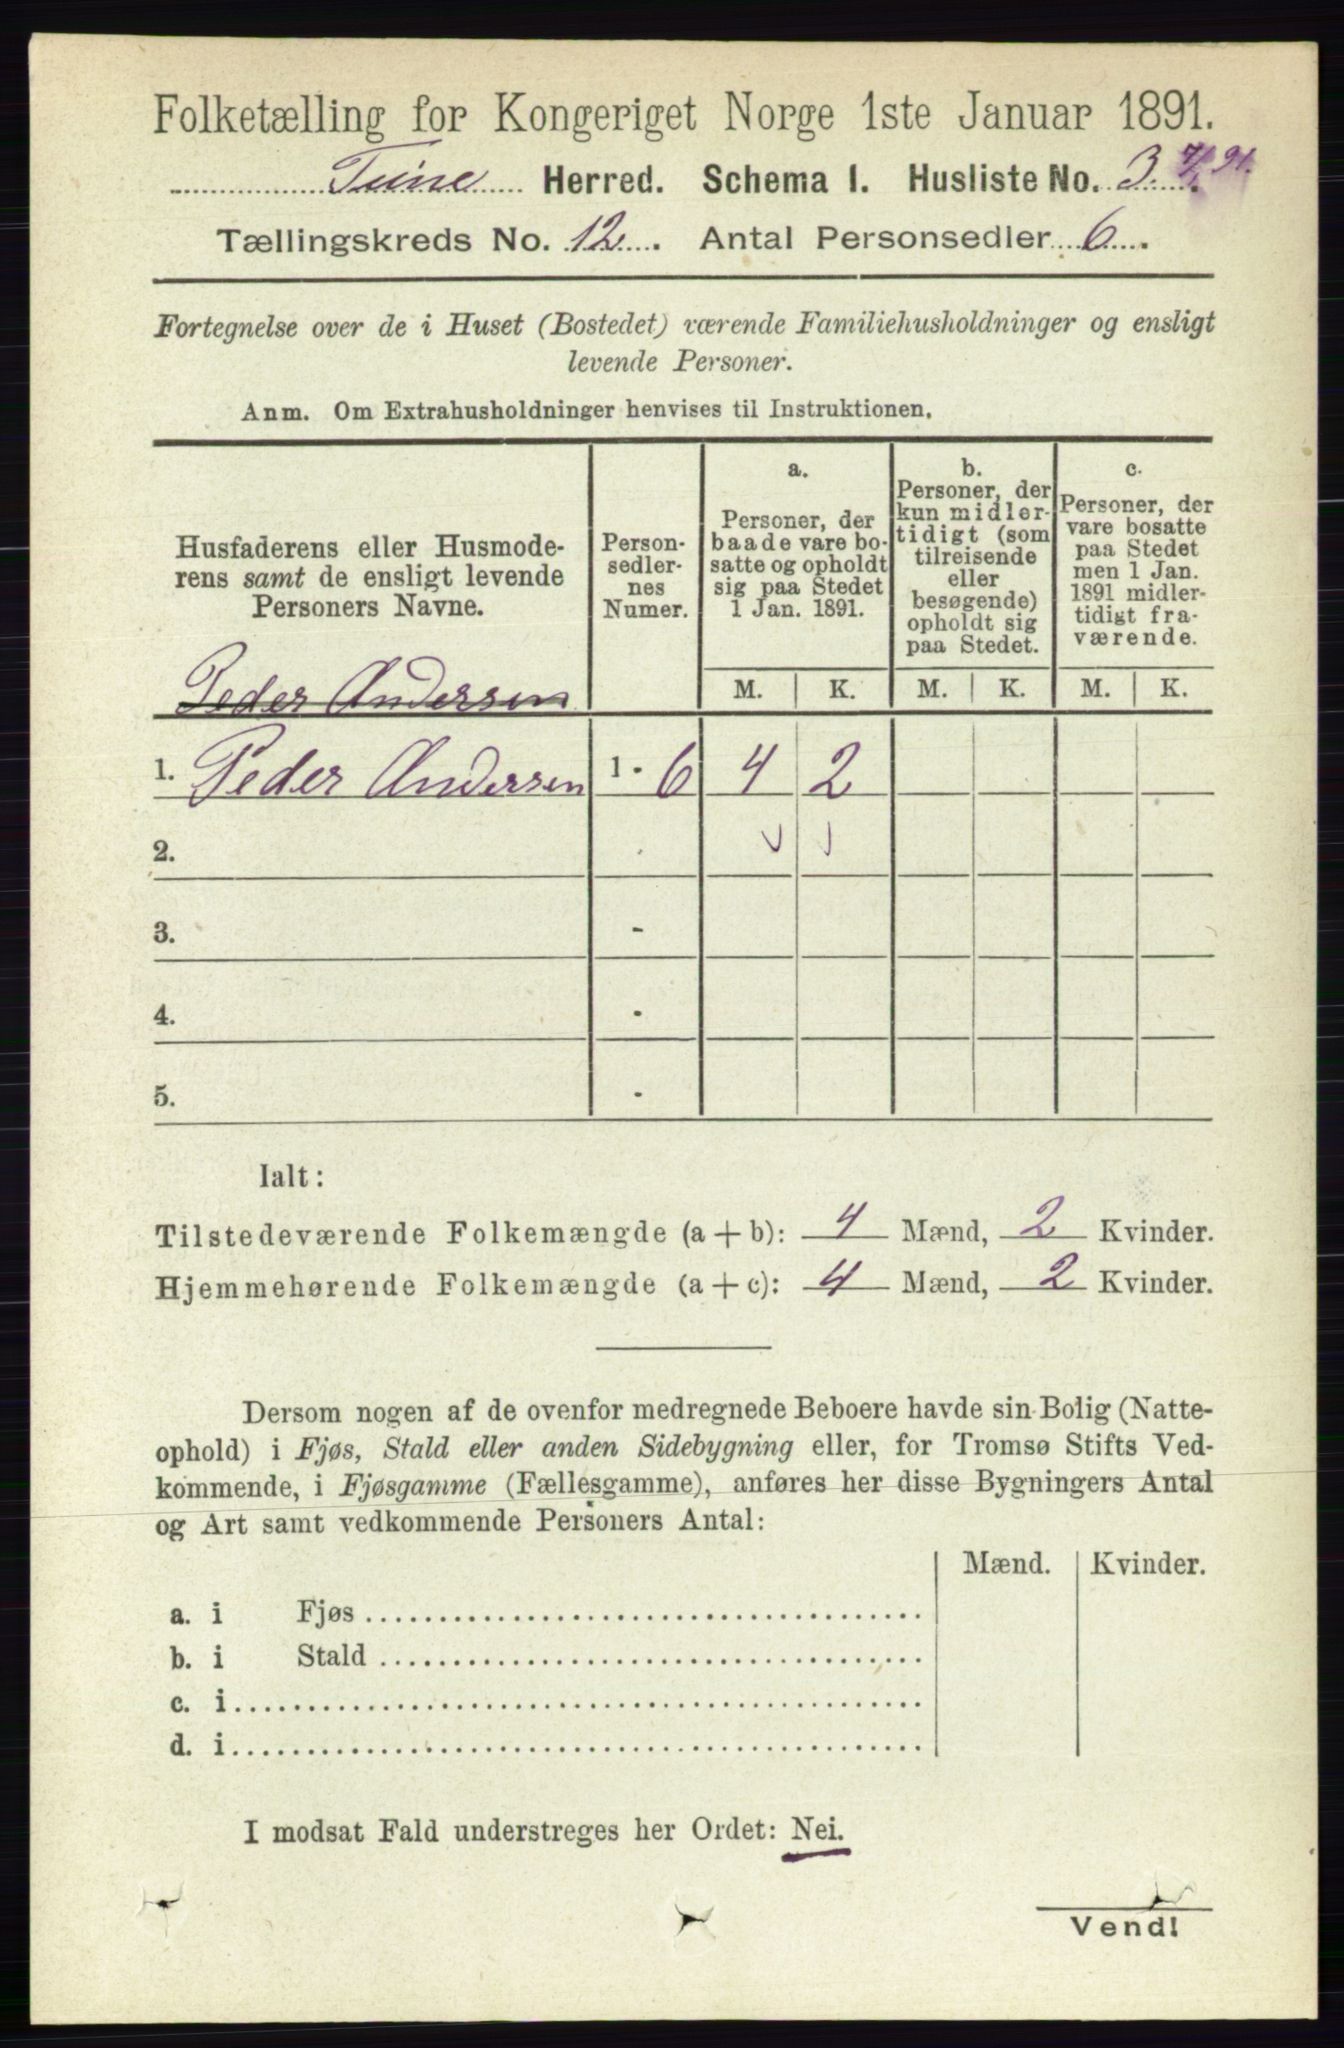 Folketælling for Kongeriget Norge 1ste Januar 1891.
Tune Herred. Schema I. Husliste No. 3
Tællingskreds No. 12. Antal Personsedler 6.
Fortegnelse over de i Huset (Bostedet) værende Familiehusholdninger og ensligt
levende Personer.
Anm. Om Extrahusholdninger henvises til Instruktionen.
Husfaderens eller Husmode-
rens samt de ensligt levende
Personers Navne.
Person-
sedler-
nes
Numer.
a.
Personer, der
baade vare bo-
satte og opholdt
sig paa Stedet
1 Jan. 1891.
b.
Personer, der
kun midler-
tidigt (som
tilreisende
eller
besøgende)
opholdt sig
paa Stedet.
c.
Personer, der
vare bosatte
paa Stedet
men 1 Jan.
1891 midler-
tidigt fra-
værende.
M. K. M. K. M. K.
Peder Andersen
1. Peder Andersen 1 - 6 4 2
2.
3. -
4. -
5. -
Ialt:
Tilstedeværende Folkemængde (a + b): 4 Mænd, 2 Kvinder.
Hjemmehørende Folkemængde (a + c): 4 Mænd, 2 Kvinder.
Dersom nogen af de ovenfor medregnede Beboere havde sin Bolig (Natte-
ophold) i Fjøs, Stald eller anden Sidebygning eller, for Tromsø Stifts Ved-
kommende, i Fjøsgamme (Fællesgamme), anføres her disse Bygningers Antal
og Art samt vedkommende Personers Antal:
Mænd. Kvinder.
a. i Fjøs
b. i Stald
c. i
d. i
I modsat Fald understreges her Ordet: Nei.
Vend!